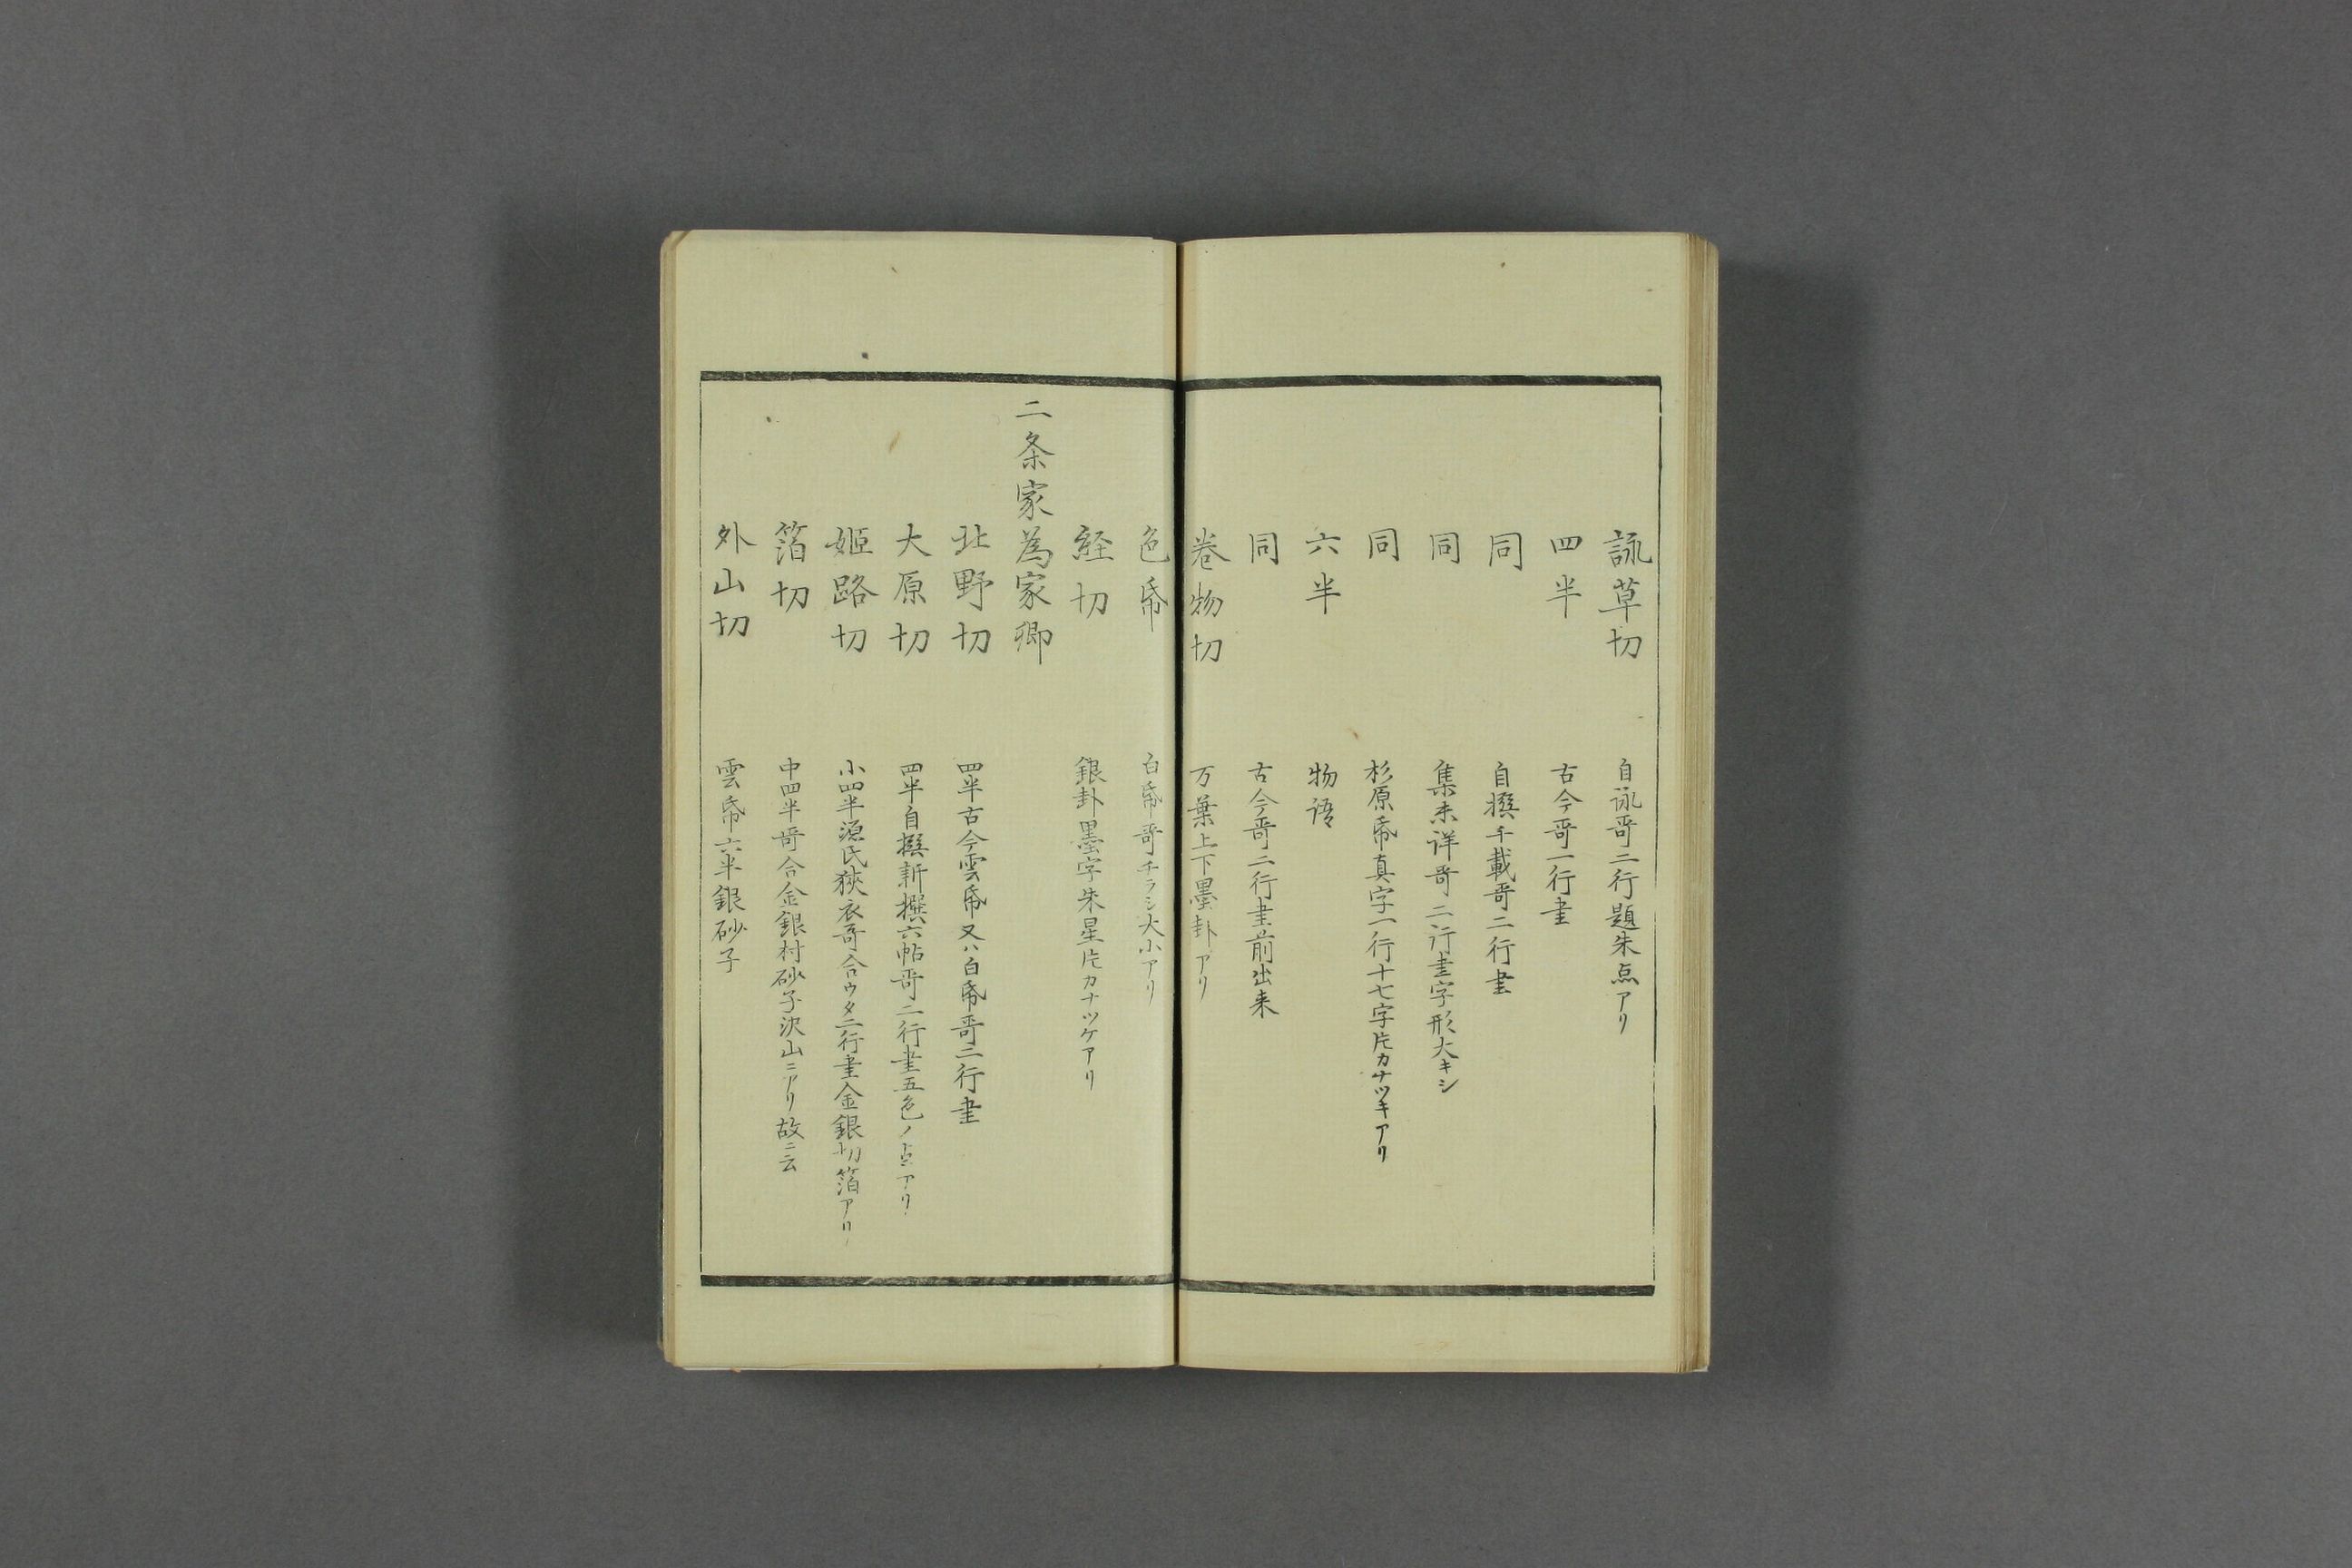 詠草切 自詠哥二行題朱点アリ
四半 古今哥一行書
同 自撰千載哥二行書
同 集未詳哥二行書字形大キシ
同 杉原帋真字一行十七字片カナツキアリ
六半 物語
同 古今哥二行書前出来
巻物切 万葉上下墨卦アリ
色帋 白帋哥チラシ大小アリ
経切 銀卦墨字朱星片カナツケアリ
二条家為家卿
北野切 四半古今雲帋又ハ白帋哥二行書
大原切 四半自撰新撰六帖哥二行書五色ノ点アリ
姬路切 小四半源氏狹衣哥合ウタ二行書金銀切箔アリ
箔切 中四半哥合金銀村砂子沢山ニアリ故ニ云
外山切 雲帋六半銀砂子